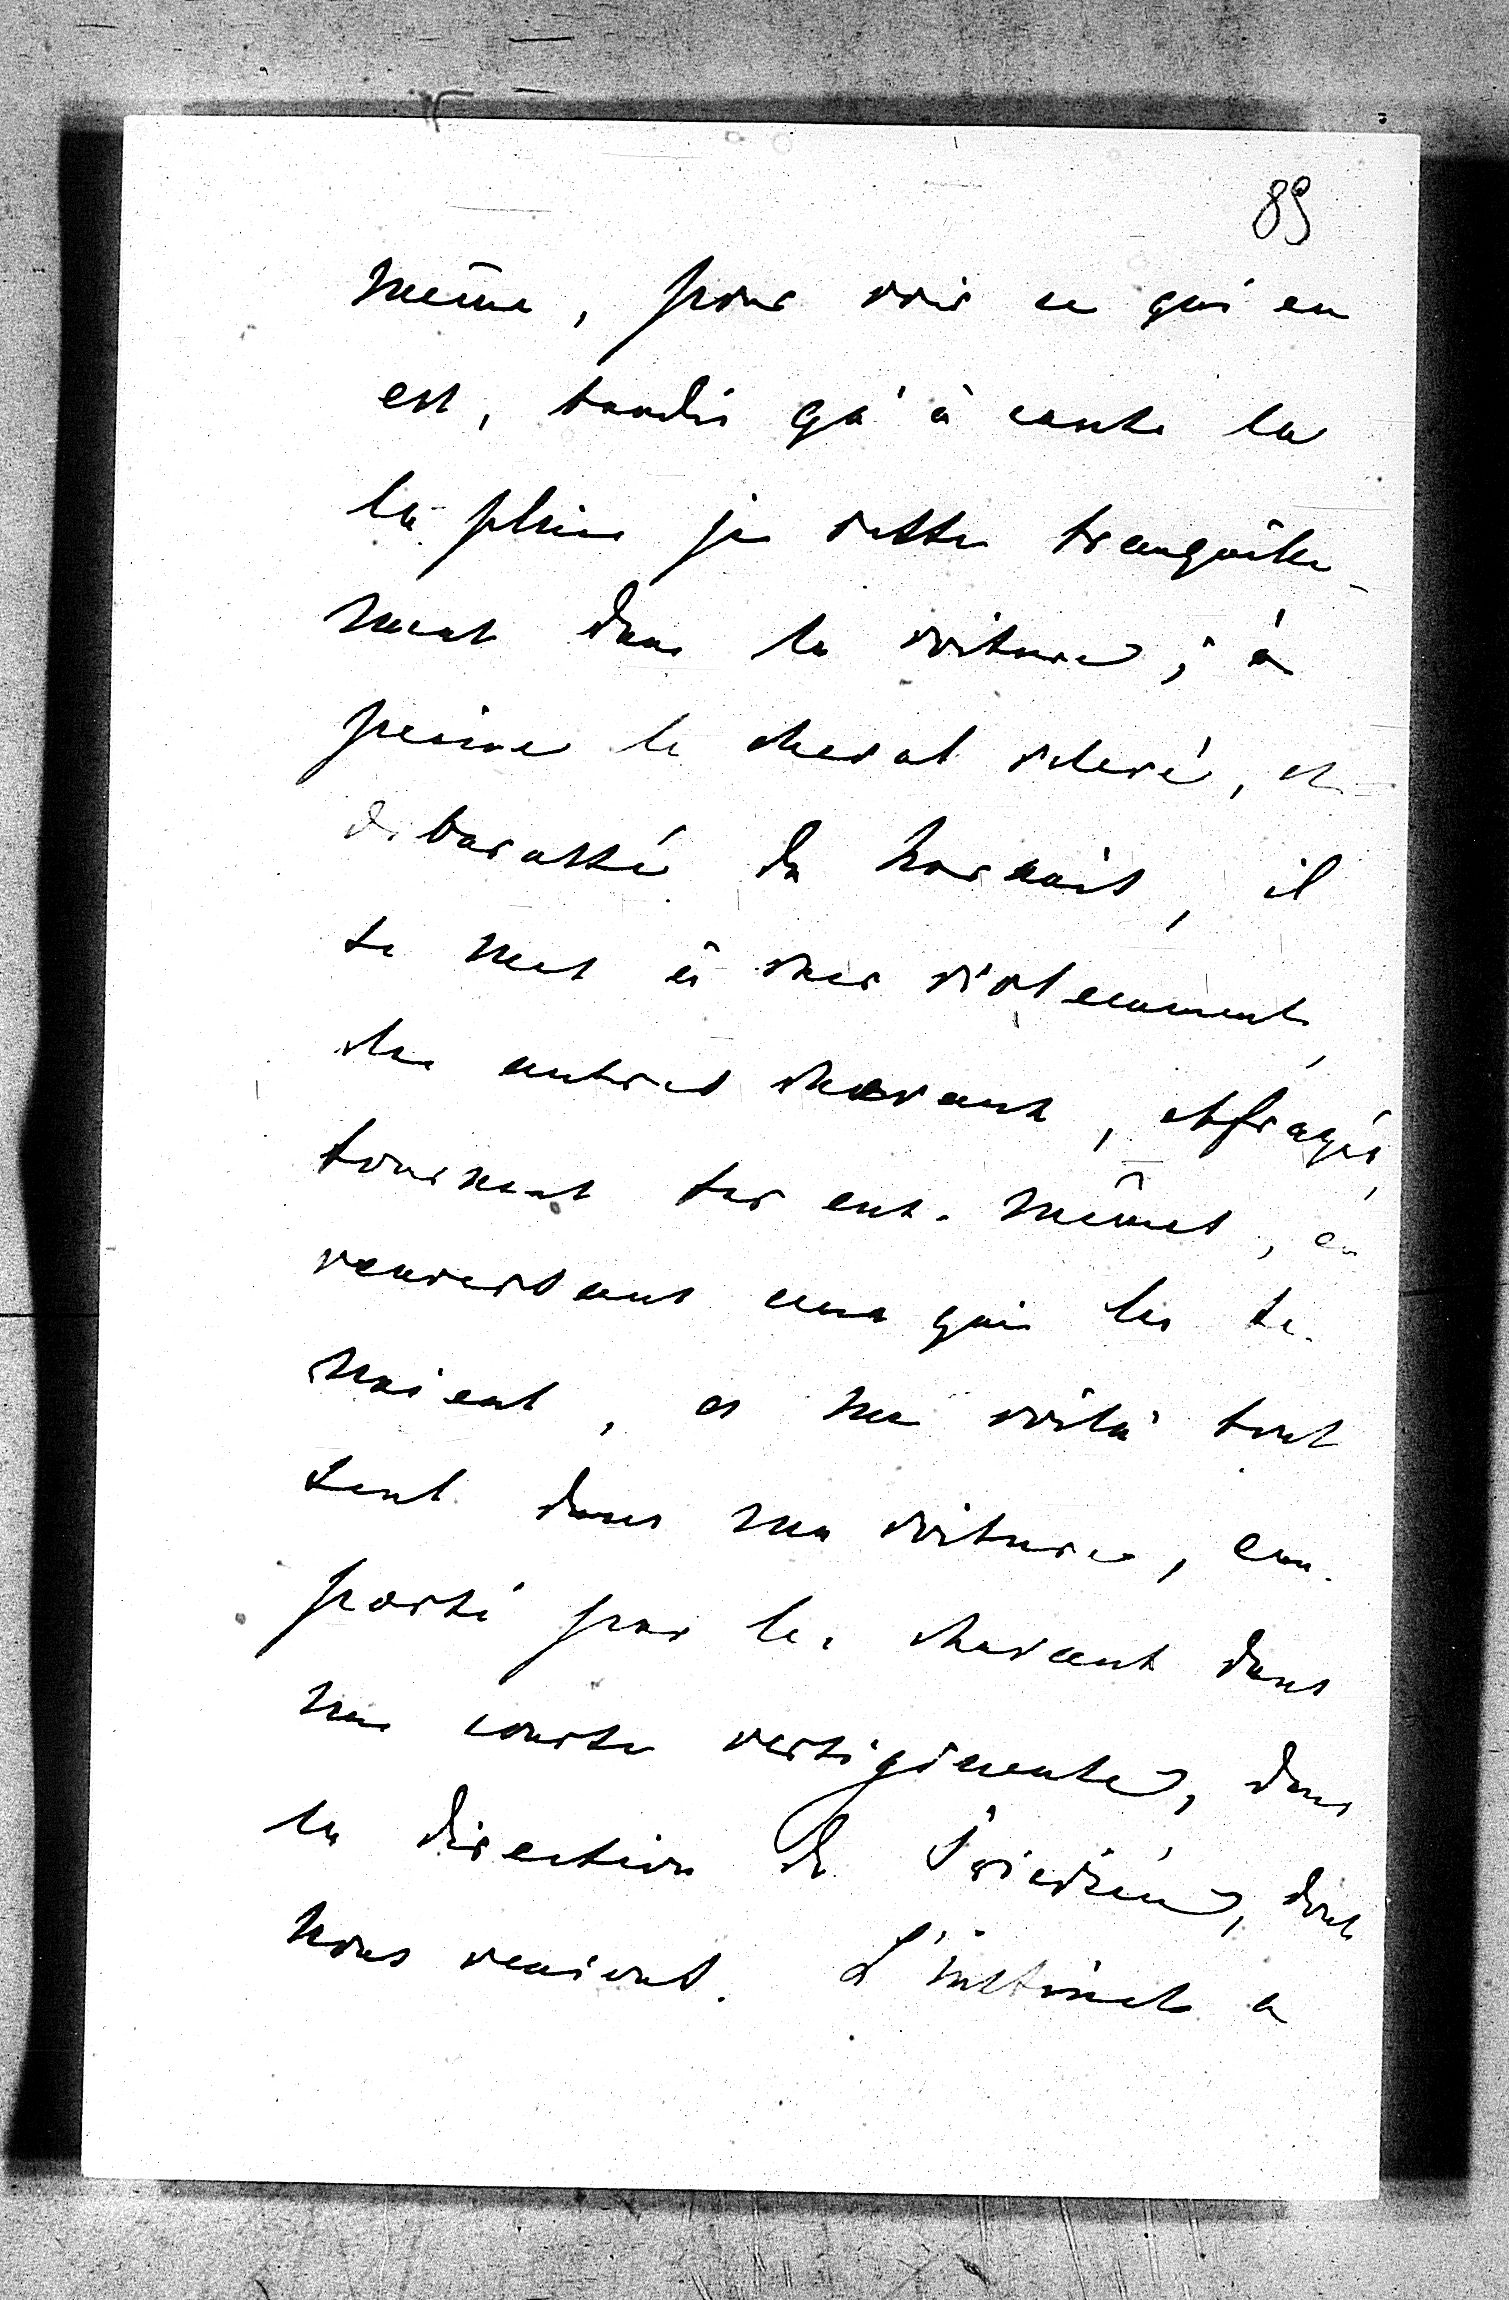 89
même, pour voir ce qui en
est, tandis qu'à cause de
la pluie je reste tranquille-
ment dans la voiture; à
peine le cheval relevé, et
débarassé du harnais, il
se met à ruer violemment,
les autres chevaux, effrayés,
tournent sur eux-mêmes, en
renversant ceux qui les te-
naient, et me voilà tout
seul dans ma voiture, em-
porté par les chevaux dans
une course vertigineuse, dans
la direction de , dont
nous venions. L'instinct a